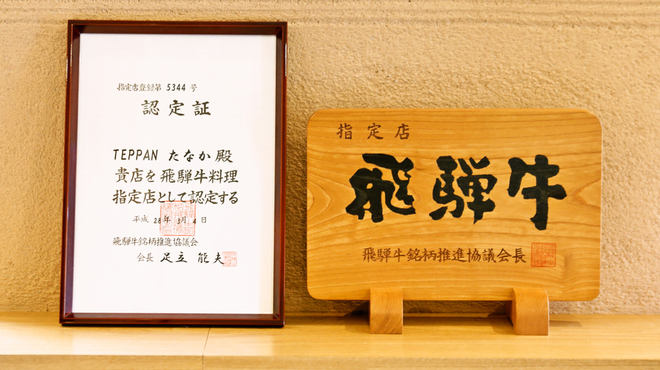 指定店登録第 5344 号
認定証
TEPPAN たなか 殿
貴店を飛騨牛料理
指定店として認定する
平成 28年 3月 4日
飛騨牛銘柄推進協議会
会長 足立 能夫
指定店
飛騨牛
飛騨牛銘柄推進協議会長